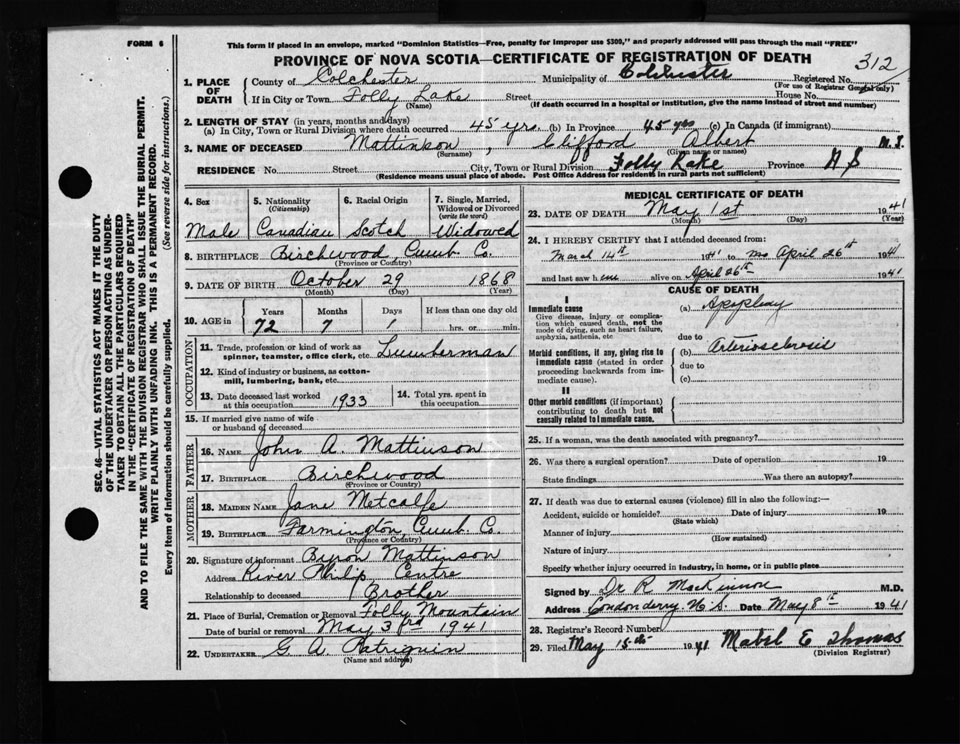 FORM 6
This form if placed in an envelope, marked "Dominion Statistics—Free, penalty for improper use $300," and properly addressed will pass through the mail "FREE"
PROVINCE OF NOVA SCOTIA—CERTIFICATE OF REGISTRATION OF DEATH
312
1. PLACE OF DEATH
County of Colchester Municipality of Colchester Registered No.
(For use of Registrar General only)
If in City or Town Folly Lake Street House No.
(Name) (If death occurred in a hospital or institution, give the name instead of street and number)
2. LENGTH OF STAY (in years, months and days)
(a) In City, Town or Rural Division where death occurred 45 yrs. (b) In Province 45 yrs (c) In Canada (if immigrant)
3. NAME OF DECEASED Mattinson, Clifford Albert
(Surname) (Given name or names)
RESIDENCE No. Street City, Town or Rural Division Folly Lake Province N S
(Residence means usual place of abode. Post Office Address for residents in rural parts not sufficient)
4. Sex
Male
5. Nationality
(Citizenship)
Canadian
6. Racial Origin
Scotch
7. Single, Married, Widowed or Divorced
(write the word)
Widowed
8. BIRTHPLACE Birchwood Cumb. Co.
(Province or Country)
9. DATE OF BIRTH October 29 1868
(Month) (Day) (Year)
10. AGE in
Years Months Days If less than one day old
72 7 1 hrs. or min.
OCCUPATION
11. Trade, profession or kind of work as
spinner, teamster, office clerk, etc. Lumberman
12. Kind of industry or business, as cotton-
mill, lumbering, bank, etc.
13. Date deceased last worked
at this occupation 1933
14. Total yrs. spent in
this occupation
15. If married give name of wife
or husband of deceased
FATHER
16. NAME John A. Mattinson
17. BIRTHPLACE Birchwood
(Province or Country)
MOTHER
18. MAIDEN NAME Jane Metcalfe
19. BIRTHPLACE Farmington, Cumb. Co.
(Province or Country)
20. Signature of informant Byron Mattinson
Address River Philip Centre
Relationship to deceased Brother
21. Place of Burial, Cremation or Removal Folly Mountain
Date of burial or removal May 3rd 1941
22. UNDERTAKER G A Patriquin
(Name and address)
MEDICAL CERTIFICATE OF DEATH
23. DATE OF DEATH May 1st 1941
(Month) (Day) (Year)
24. I HEREBY CERTIFY that I attended deceased from:
March 14th 1941 to April 26th 1941
and last saw him alive on April 26th 1941
CAUSE OF DEATH
I
Immediate cause
Give disease, injury or complica-
tion which caused death, not the
mode of dying, such as heart failure,
asphyxia, asthenia, etc
(a)
due to
Morbid conditions, if any, giving rise to
immediate cause (stated in order
proceeding backwards from im-
mediate cause).
(b) Arteriosclerosis
due to
(c)
II
Other morbid conditions (if important)
contributing to death but not
causally related to immediate cause.
25. If a woman, was the death associated with pregnancy?
26. Was there a surgical operation? Date of operation 19
State findings Was there an autopsy?
27. If death was due to external causes (violence) fill in also the following:—
Accident, suicide or homicide? Date of injury 19
(State which)
Manner of injury
(How sustained)
Nature of injury
Specify whether injury occurred in Industry, in home, or in public place
Signed by Dr R MacKinnon M.D.
Address Londonderry N.S. Date May 8th 1941
28. Registrar's Record Number
29. Filed May 15th 1941 Mabel E Thomas
(Division Registrar)
SEC. 46—VITAL STATISTICS ACT MAKES IT THE DUTY
OF THE UNDERTAKER OR PERSON ACTING AS UNDER-
TAKER TO OBTAIN ALL THE PARTICULARS REQUIRED
IN THE "CERTIFICATE OF REGISTRATION OF DEATH"
AND TO FILE THE SAME WITH THE DIVISION REGISTRAR WHO SHALL ISSUE THE BURIAL PERMIT.
WRITE PLAINLY WITH UNFADING INK. THIS IS A PERMANENT RECORD.
Every item of information should be carefully supplied. (See reverse side for instructions.)